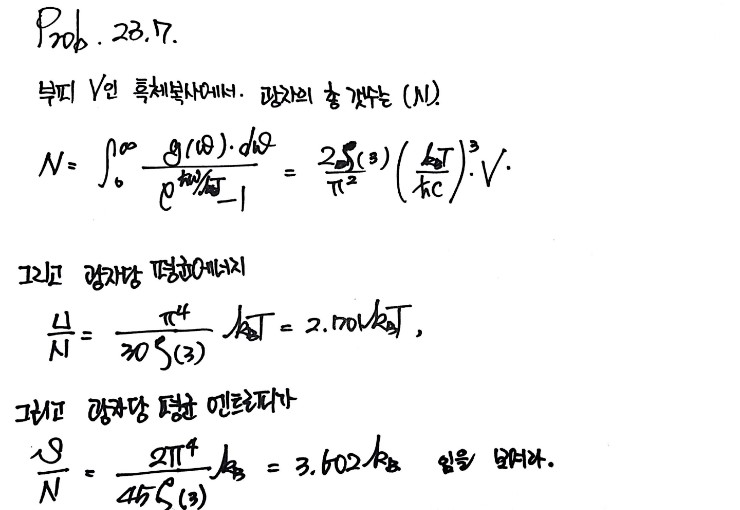 Prob. 23.7.
부피 V인 흑체복사에서. 광자의 총 갯수는 (N).
N = ∫₀^∞ g(ω)·dω / (e^{ħω/k_BT} - 1) = 2ζ(3)/π² (k_BT/ħc)³·V.
그리고 광자당 평균에너지
U/N = π⁴/(30ζ(3)) k_BT = 2.701k_BT,
그리고 광자당 평균 엔트리피가
S/N = 2π⁴/(45ζ(3)) k_B = 3.602k_B 임을 보여라.